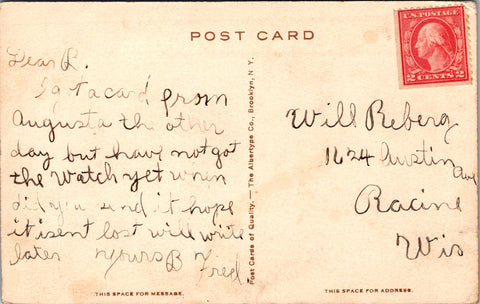 POST CARD
U.S. POSTAGE
2 CENTS 2
Dear R.
I got a card from
Augusta the other
day but have not got
the Watch yet when
did you send it hope
it isent lost will write
later Yours B
Fred
Post Cards of Quality. — The Albertype Co., Brooklyn, N. Y.
Will Reberg
1624 Austin
Ave
Racine
Wis
THIS SPACE FOR MESSAGE.
THIS SPACE FOR ADDRESS.